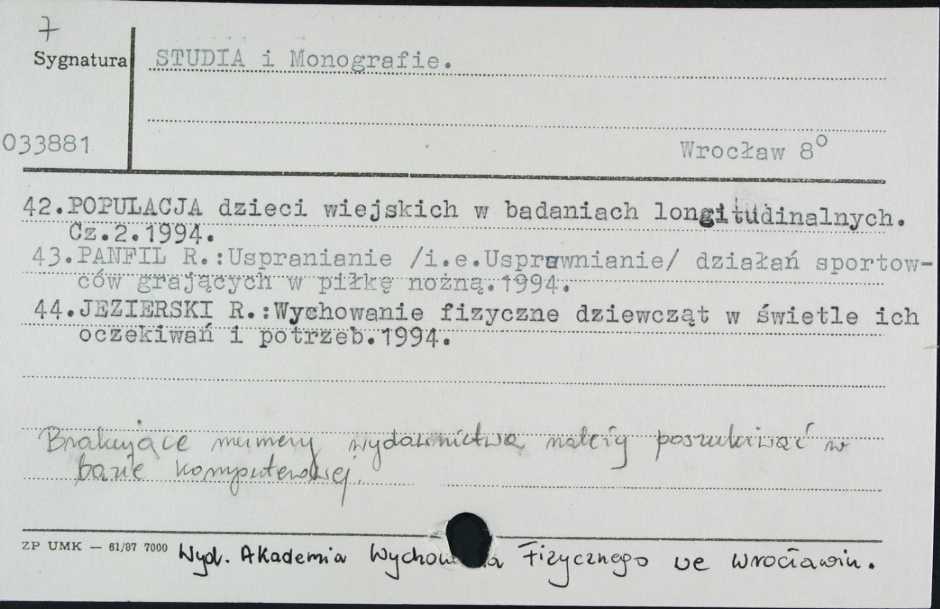 7
Sygnatura
STUDIA i Monografie.
033881
Wrocław 8°
42.POPULACJA dzieci wiejskich w badaniach longitudinalnych.
Cz.2.1994.
43.PANFIL R.:Uspranianie /i.e.Usprawnianie/ działań sportow-
ców grających w piłkę nożną.1994.
44.JEZIERSKI R.:Wychowanie fizyczne dziewcząt w świetle ich
oczekiwań i potrzeb.1994.
Brakujące numery wydawnictwa należy poszukiwać w
bazie komputerowej.
ZP UMK — 61/87 7000
Wyd. Akademia Wychowania Fizycznego we Wrocławiu.